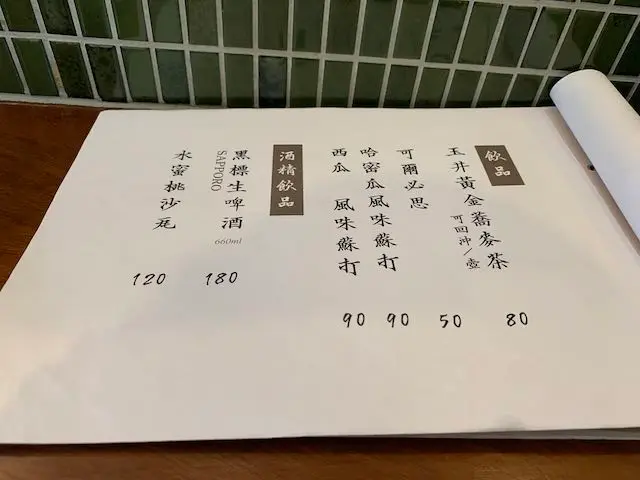 飲品
玉井黃金蕎麥茶
可回沖/壺
80
可爾必思
50
哈密瓜風味蘇打
90
西瓜 風味蘇打
90
酒精飲品
黑標生啤酒
SAPPORO
660ml
180
水蜜桃沙瓦
120